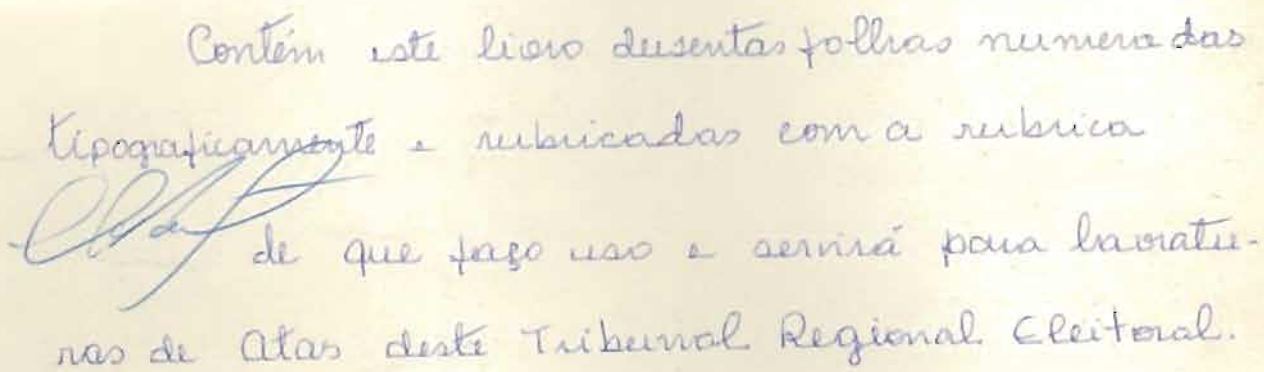 Contém este livro duzentas folhas numeradas
tipograficamente e rubricadas com a rubrica
de que faço uso e servirá para lavratu-
ras de Atas deste Tribunal Regional Eleitoral.